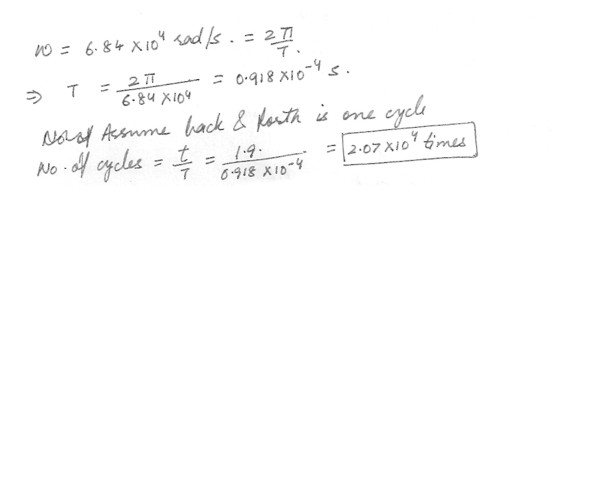 ω = 6.84 × 10⁴ rad/s. = 2π/T.
⇒ T = 2π/6.84 × 10⁴ = 0.918 × 10⁻⁴ s.
Assume back & forth is one cycle
No. of cycles = t/T = 1.9./0.918 × 10⁻⁴ = 2.07 × 10⁴ times